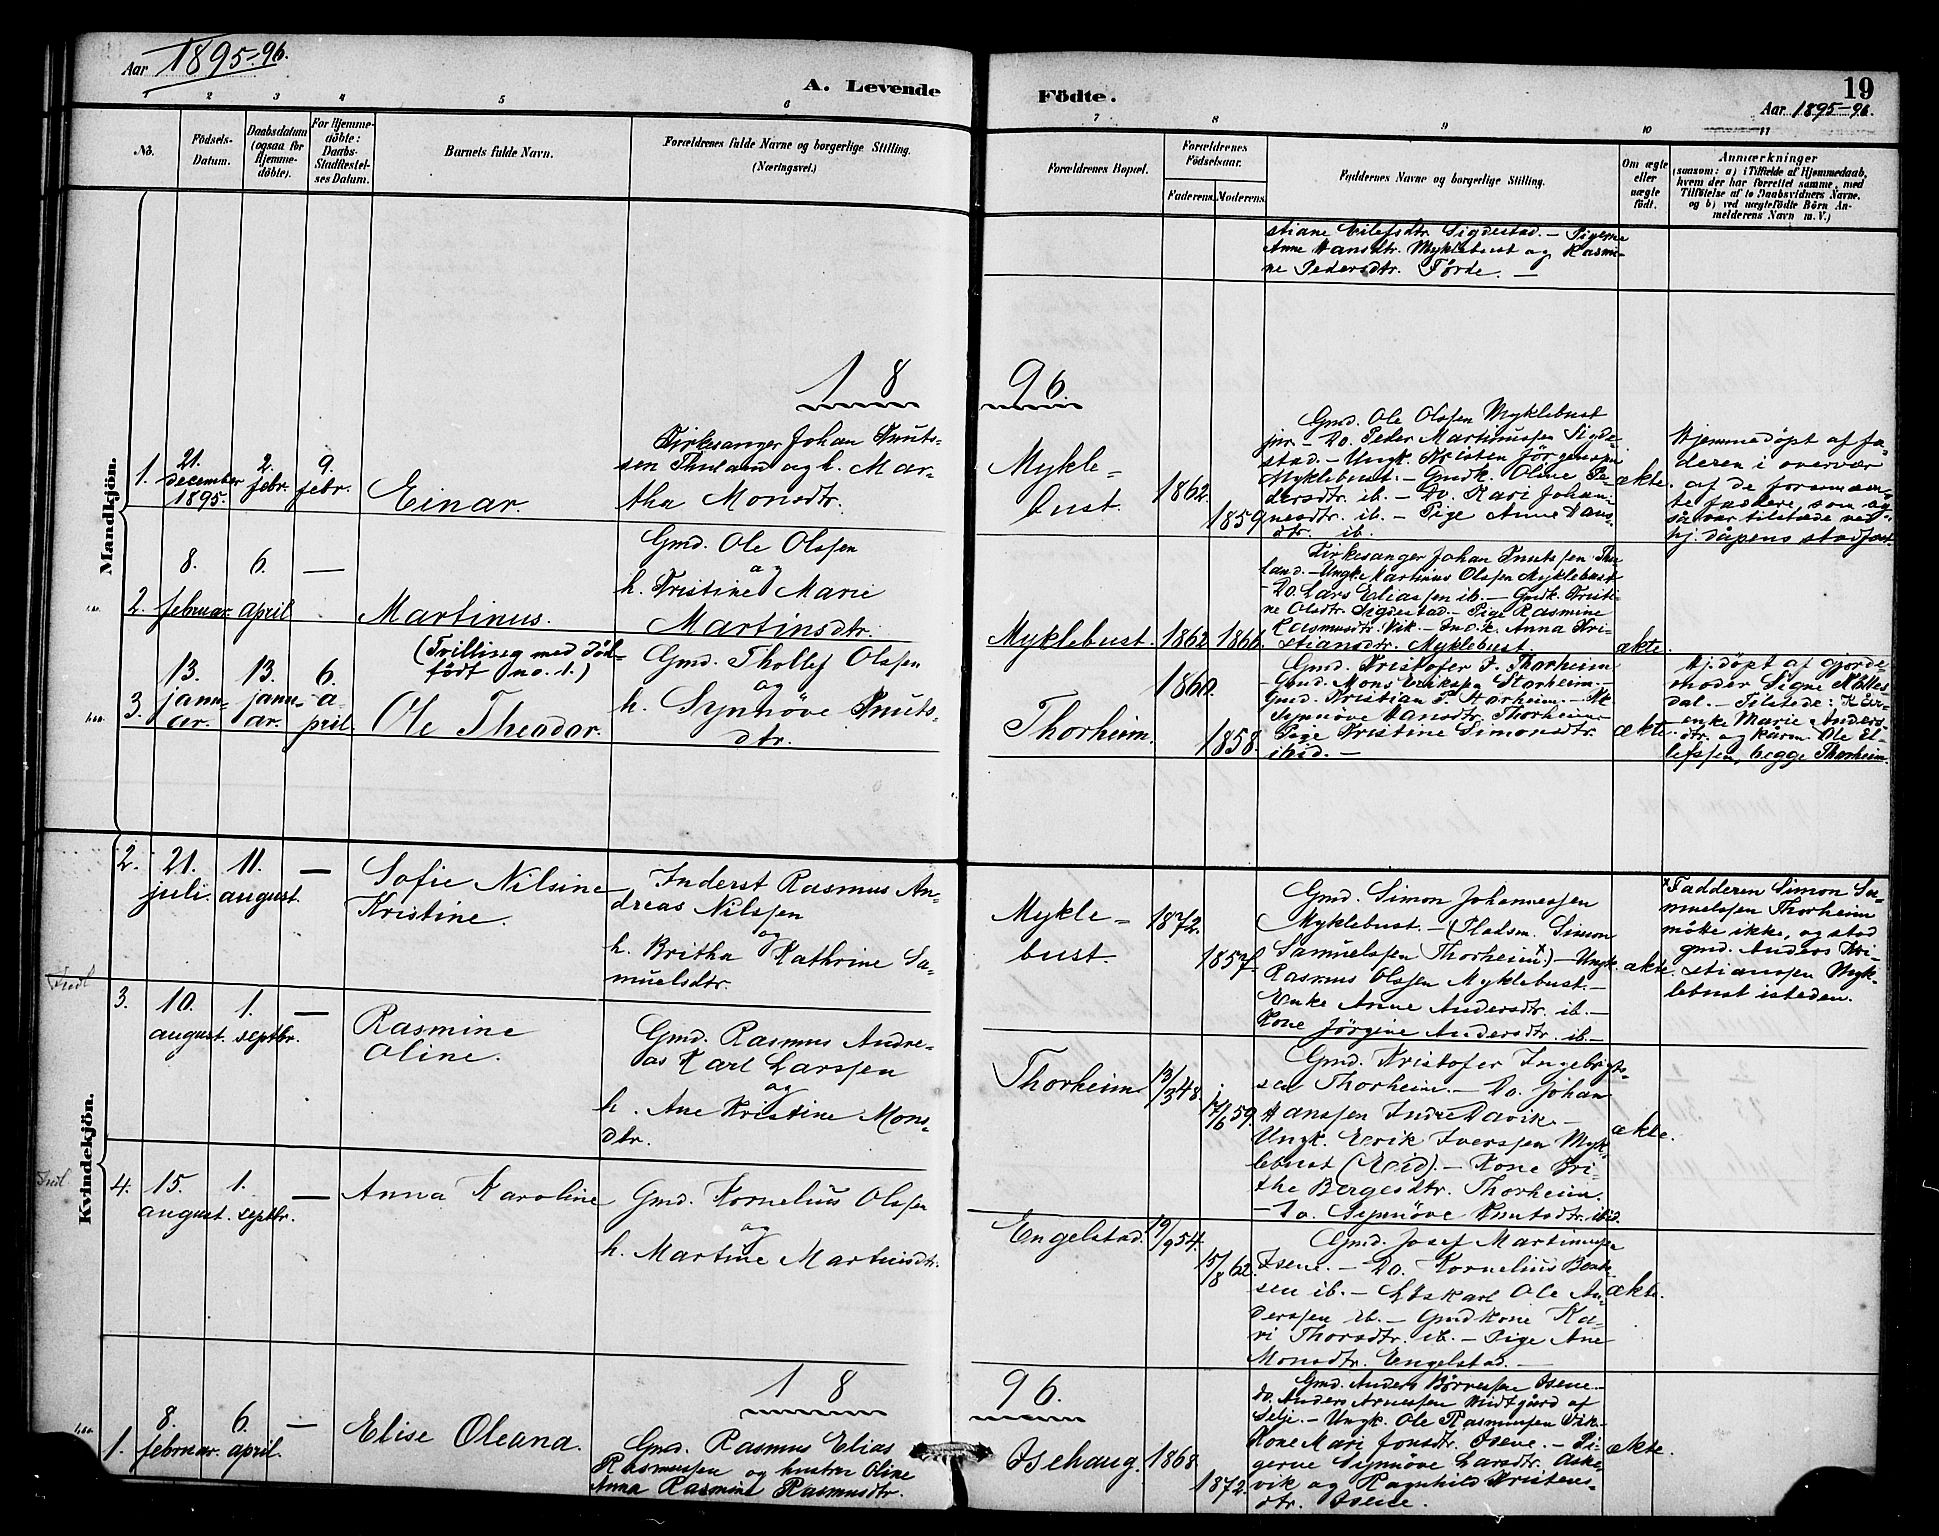 Aar 1895-96.
A. Levende
Födte.
19
Aar 1895-96.
1 2 3 4 5 6 7 8 9 10 11
No.
Födsels-
Datum.
Daabsdatum
(ogsaa for
Hjemme-
døbte).
For Hjemme-
døbte:
Daabs-
Stadfæstel-
ses Datum.
Barnets fulde Navn.
Forældrenes fulde Navne og borgerlige Stilling.
(Næringsvei.)
Forældrenes Bopæl.
Forældrenes
Födselsaar.
Faderens. Moderens.
Faddernes Navne og borgerlige Stilling.
Om ægte
eller
uægte
födt.
Anmærkninger
(saasom: a) i Tilfælde af Hjemmedaab,
hvem der har forrettet samme, med
Tilföielse af to Daabsvidners Navne,
og b) ved uægtefödte Börn An-
melderens Navn m. V.)
stiane Eilefsdtr. Sigdestad. - Pigerne
Anne Hansdtr. Myklebust og Rasmi-
ne Pedersdtr. Förde. -
Mandkjön.
18
96.
1.
21.
december
1895.
2.
febr.
9.
febr.
Einar.
Kirkesanger Johan Knuts-
sen Thuland og h. Mar-
tha Monsdtr.
Mykle-
bust.
1862.
1859.
Gmd. Ole Olssen Myklebust
jnr. - Do. Peder Martinussen Sigde-
stad. - Ungk. Kristen Jörgenssen
Myklebust. - Gmdk. Oline Pe-
dersdtr. ib. - Do. Kari Johan-
nesdtr. ib. - Pige Anne Hans-
dtr. ib.
ækte.
Hjemmedöpt af fa-
deren i overvær
af de forannævn-
te faddere som og-
så var tilstæde ved
hj. dåpens stadfæst.
2.
8.
februar.
6.
april
-
Martinus.
Gmd. Ole Olssen
og
h. Kristine Marie
Martinsdtr.
Myklebust.
1862
1866.
Kirkesanger Johan Knutssen Thu-
land. - Ungk. Martinus Olssen Myklebust
- Do. Lars Eliassen ib. - Gmdk. Kristi-
ne Olsdtr. Sigdestad. - Pige Rasmine
Rasmusdtr. Vik. - Anna Kri-
stiansdtr. Myklebust.
ækte.
3.
13.
janu-
ar.
13.
janu-
ar.
6.
a-
pril.
(Tvilling med död-
född no. 1.)
Ole Theodor.
Gmd. Thollef Olssen
og
h. Synnöve Knuts-
dtr.
Thorheim.
1860.
1858.
Gmd. Kristofer I. Thorheim
- Gmd. Mons Erikssen Starheim. -
Gmd. Kristian P. Starheim. -
Synnöve Hansdtr. Thorheim -
Pige Kristine Simonsdtr.
ibid. -
ækte.
Hj. döpt af gjorde-
moder Signe
dal. - Tilstede:
enke Marie Anders-
dtr. og kårm. Ole El-
lefssen, begge Thorheim.
Kvindekjön.
2.
21.
juli.
11.
august.
-
Sofie Nilsine
Kristine.
Inderst Rasmus An-
dreas Nilssen
og
h. Britha Kathrine Sa-
muelsdtr.
Mykle-
bust
1872.
1857.
Gmd. Simon Johannessen
Myklebust. - (Pladsm. Simon
Samuelssen Thorheim x) - Ungk.
Rasmus Olssen Myklebust. -
Enke Anne Andersdtr. ib. -
Kone Jörgine Andersdtr. ib. -
ækte.
x Fadderen Simon Sa-
muelssen Thorheim
möte ikke, og stod
gmd. Anders Kri-
stianssen Myk-
lebust isteden.
3.
10.
august.
1.
septbr.
-
Rasmine
Oline.
Gmd. Rasmus Andre-
as Karl Larssen
og
h. Ane Kristine Mons-
dtr.
Thorheim
13/3 48.
17/6 59.
Gmd. Kristofer Ingebrigts-
sen Thorheim. - Do. Johan
Hanssen Indre Davik. -
Ungk. Erik Iverssen Myk-
lebust (Eid). - Kone Bri-
the Bergesdtr. Thorheim.
- Do. Synnöve Knutsdtr. ibid.
ækte.
4.
15.
august.
1.
septbr.
-
Anna Karoline
Gmd. Kornelius Olssen
og
h. Martine Martinsdtr.
Engelstad.
19/9 54.
15/8 62.
Gmd. Josef Martinussen
Isene. - Do. Kornelius Bendt-
sen ib. - Löskarl Ole An-
derssen ib. - Gmdkone Ka-
ri Thorsdtr. ib. - Pige Ane
Monsdtr. Engelstad. -
ækte.
18
96.
1.
8.
februar.
6.
april.
-
Elise Oleana.
Gmd. Rasmus Elias
Rasmussen og hustru Oline
Anna Rasmine Rasmusdtr.
Isehaug.
1868
1872.
Gmd. Anders Börressen Isene. -
do. Anders Arnessen Hidtgård af
Selje. - Ungk. Ole Rasmussen Vik. -
Kone Mari Jonsdtr. Isene. - Pi-
gerne Synnöve Larsdtr. Aske-
vik og Ragnhild Kristens-
dtr. Isene.
ækte.